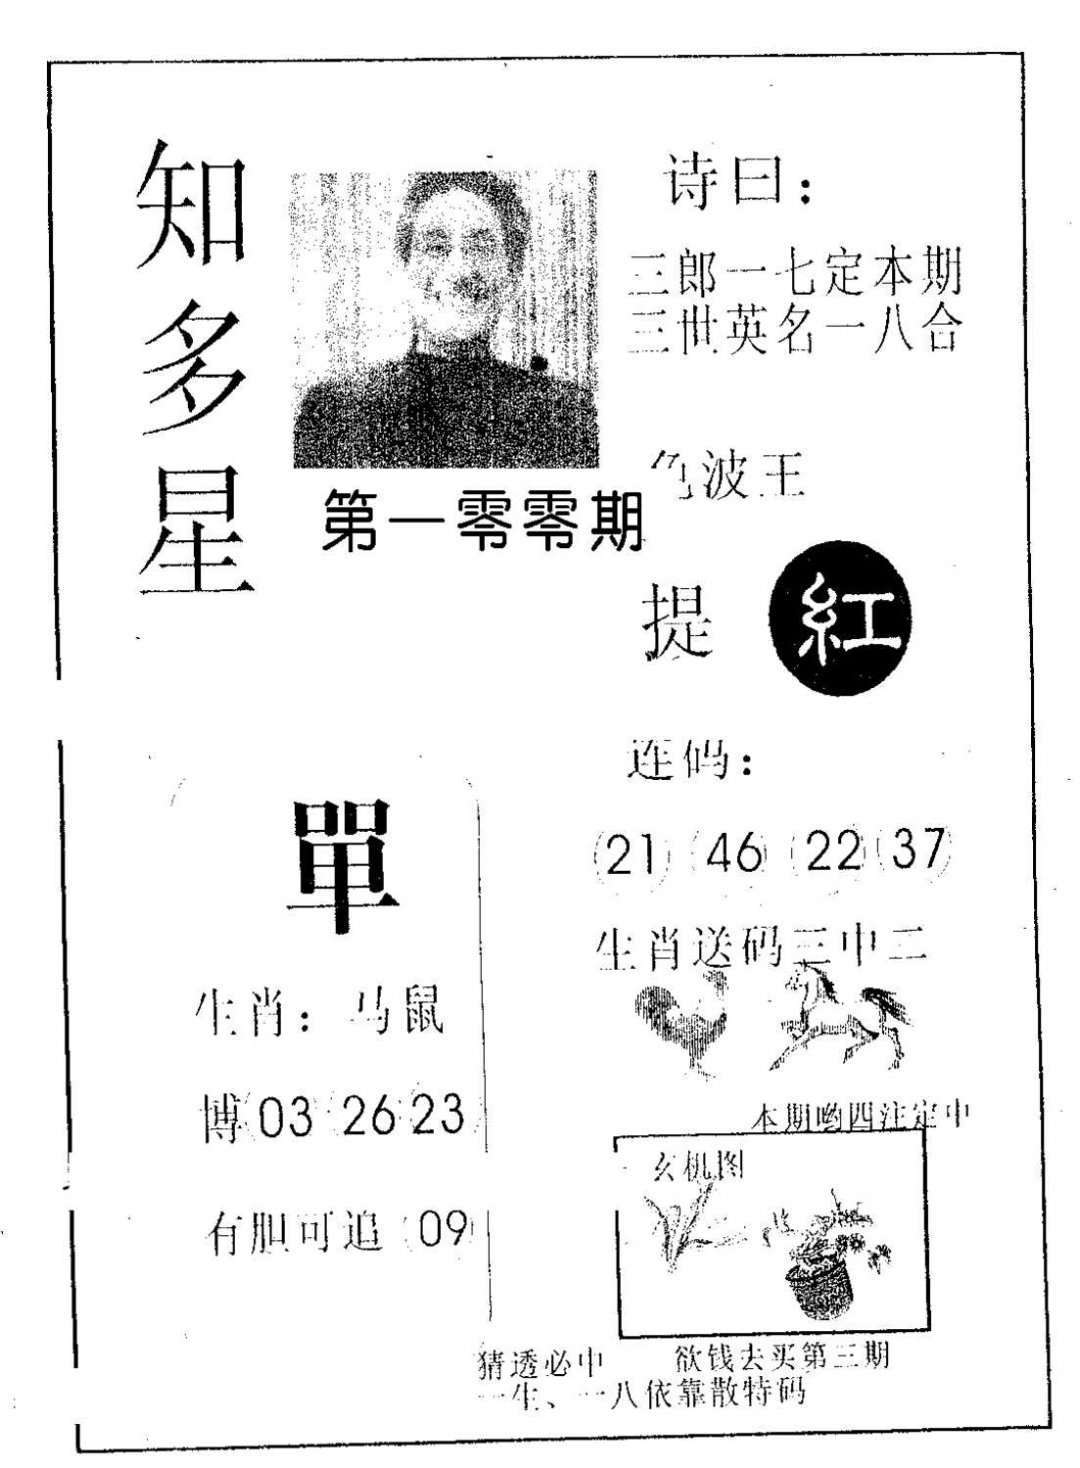 知多星
第一零零期
诗曰：
三郎一七定本期
三世英名一八合
色波王
提 紅
連码：
21 46 22 37
生肖送码三中二
單
生肖：马鼠
博 03 26 23
有胆可追 09
本期哟四注定中
玄机图
猜透必中 欲钱去买第三期
一生、一八依靠散特码